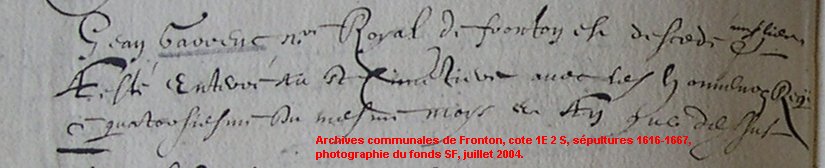 Jean Gavoeuc nre Royal de fronton est decede
A esté enterré au St Cimetiere avec les honneurs
quatorziesme du mesme mois et an que dessus
Archives communales de Fronton, cote 1E 2 S, sépultures 1616-1667,
photographie du fonds SF, juillet 2004.